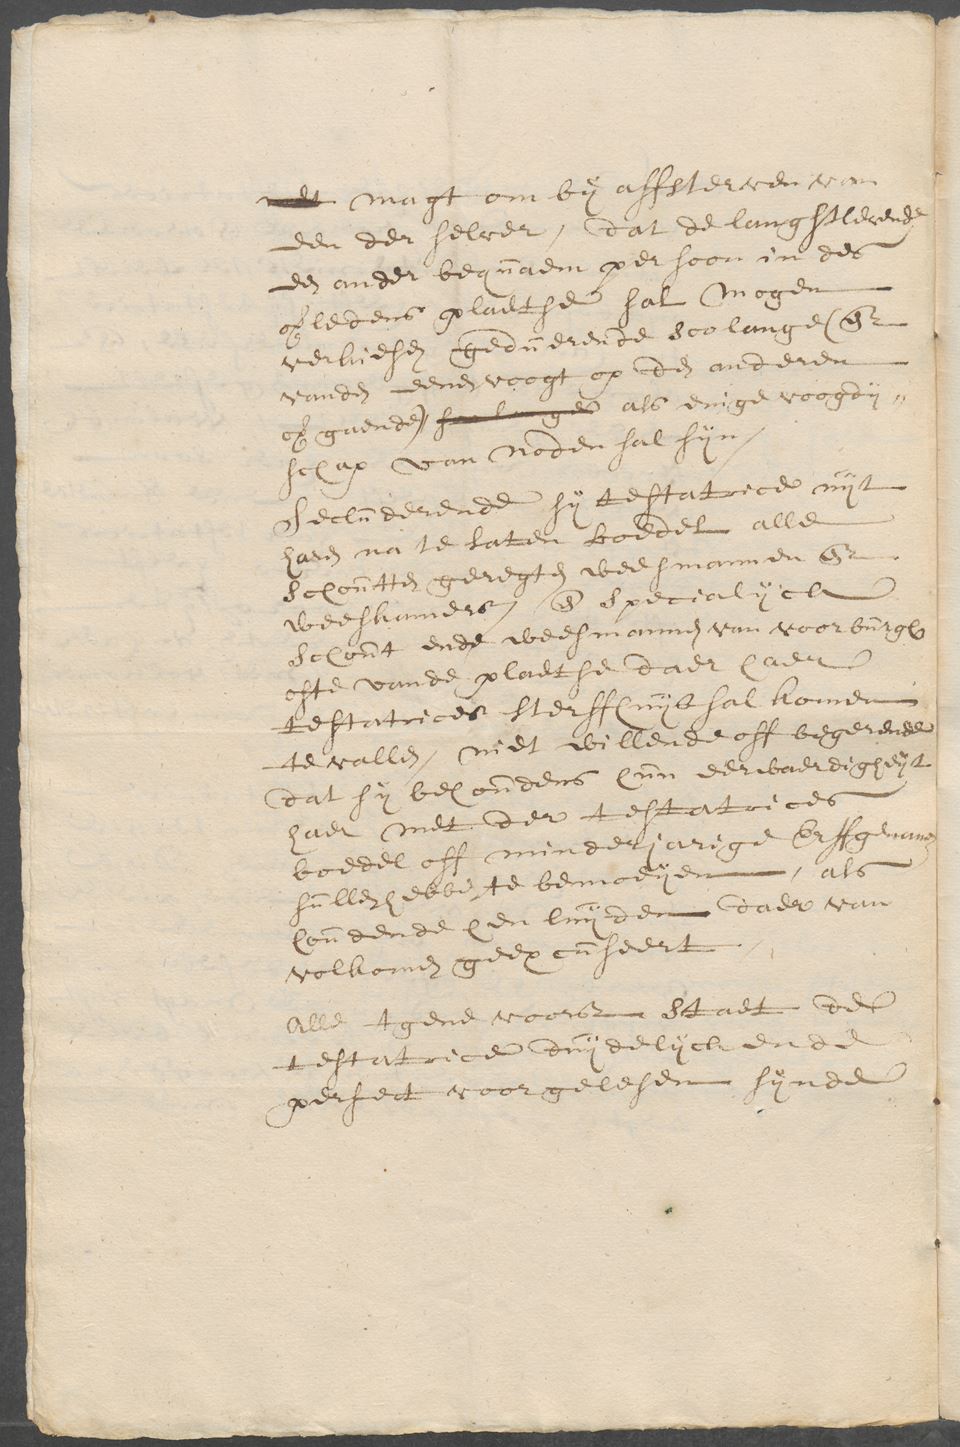 met magt om bij affsterven van
een der selver, dat de langhstlevende
een ander bequaem persoon in des
overledens plaetse sal mogen
verkiesen geduerende soo lange (en
vanden eenen voogt op den anderen
overgaende) soo lange als enige voogdij„
schap van noden sal sijn,
Secluderende sij testatrice uijt
haren na te laten boedel alle
Schoutten geregten weesmannen en
weeskamers, en specialijck
Schout ende weesmannen van voorburgh
ofte vande plaetse daer haer
testatrices sterffhuijs sal komen
te vallen, niet willende off begerende
dat sij behoudens hun eerwaerdigheijt
haer met der testatrices
boedel off minderjarige Erffgenamen
sullen hebben te bemoeijen, als
houdende hen luijden daer van
volkomen geexcuseert,
Alle tgene voors staet de
testatrice duijdelijck ende
perfect voorgelesen sijnde